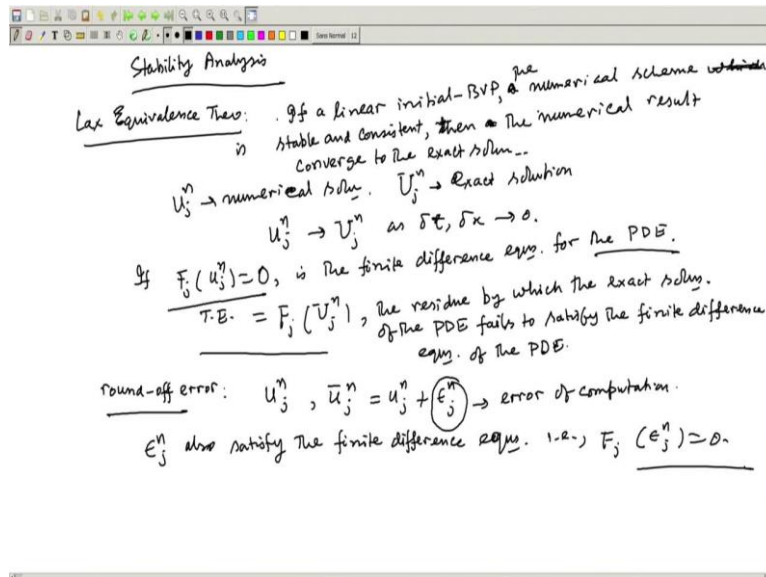 Sans Normal 12
Stability Analysis
Lax Equivalence Theo: . If a linear initial-BVP, the numerical scheme
is stable and consistent, then the numerical result
converge to the exact soln--
u_j^n → numerical soln. U_j^n → exact solution
u_j^n → U_j^n as δt, δx → 0.
If F_j(u_j^n)=0, is the finite difference eqns. for the PDE.
T.E. = F_j(U_j^n), the residue by which the exact solns.
of the PDE fails to satisfy the finite difference
eqns. of the PDE.
round-off error: u_j^n, ū_j^n = u_j^n + ε_j^n → error of computation.
ε_j^n also satisfy the finite difference eqns. i.e., F_j (ε_j^n)=0.